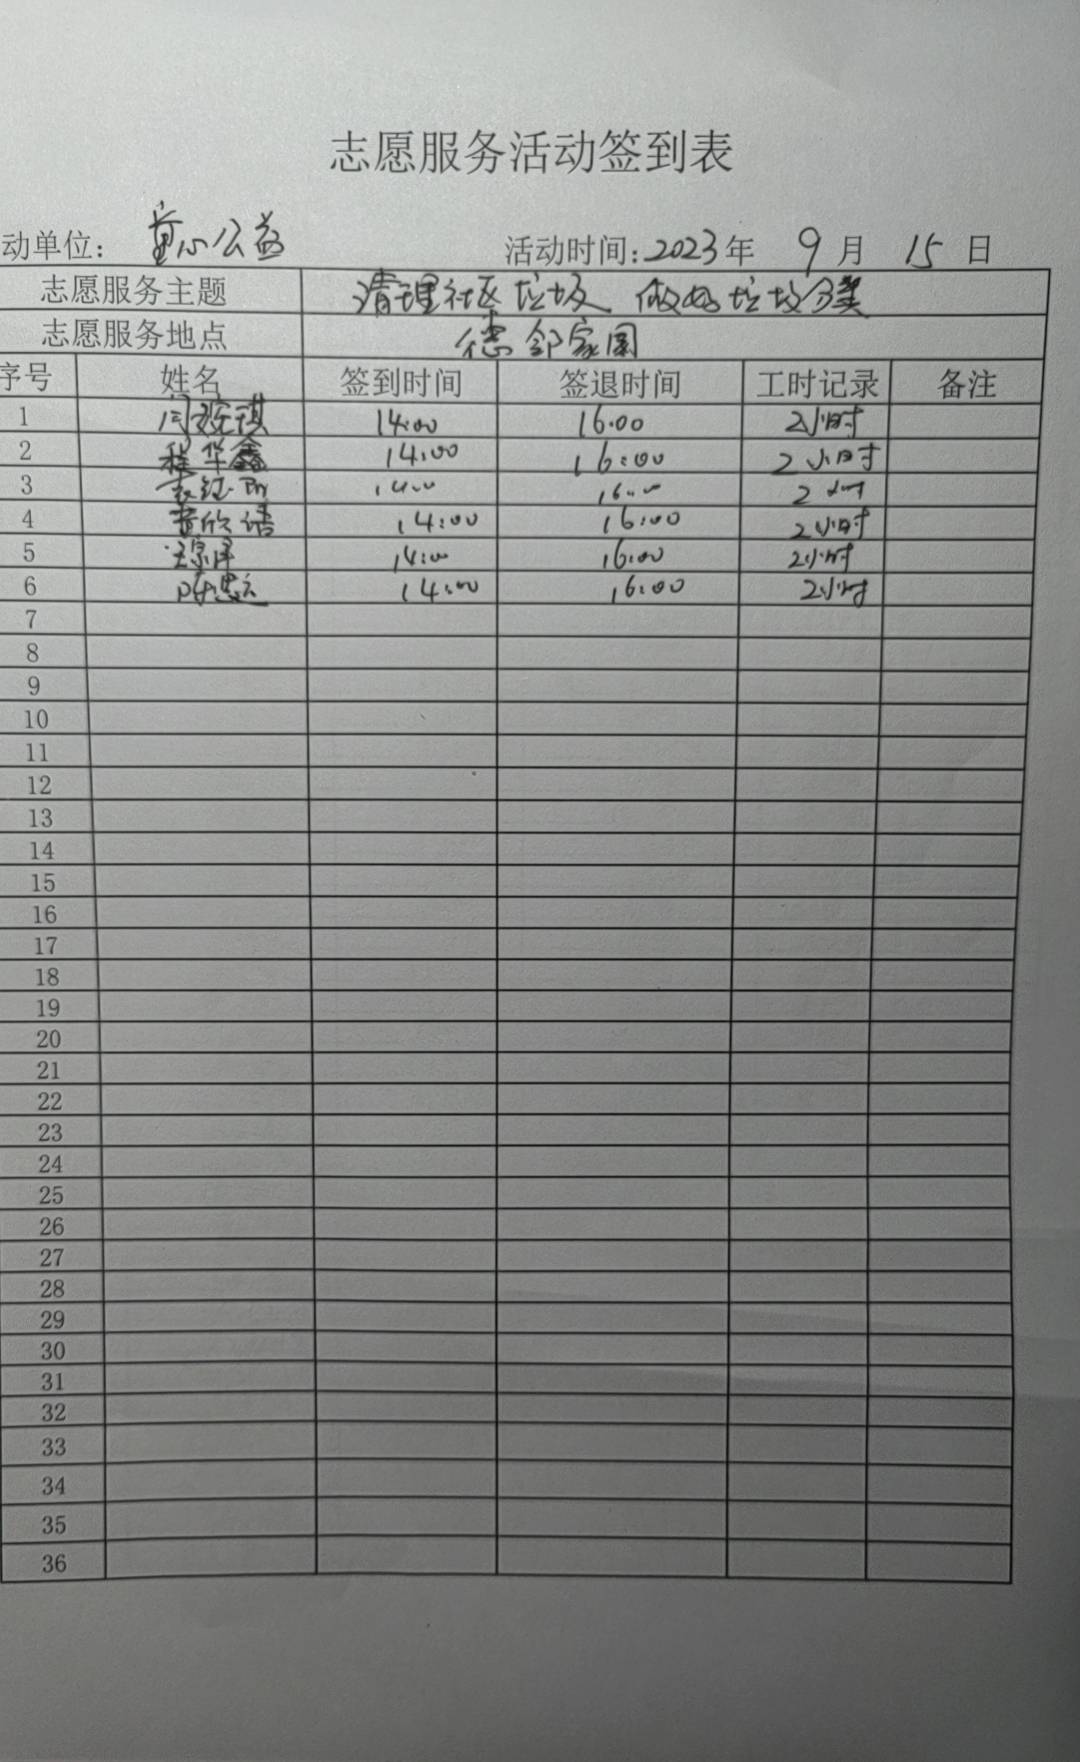 志愿服务活动签到表
动单位： 童心公益 活动时间：2023年 9月 15日
志愿服务主题 清理社区垃圾 做好垃圾分类
志愿服务地点 德邻家园
序号 姓名 签到时间 签退时间 工时记录 备注
1 14:00 16:00 2小时
2 程华鑫 14:00 16:00 2小时
3 14:00 16:00 2小时
4 14:00 16:00 2小时
5 14:00 16:00 2小时
6 14:00 16:00 2小时
7
8
9
10
11
12
13
14
15
16
17
18
19
20
21
22
23
24
25
26
27
28
29
30
31
32
33
34
35
36